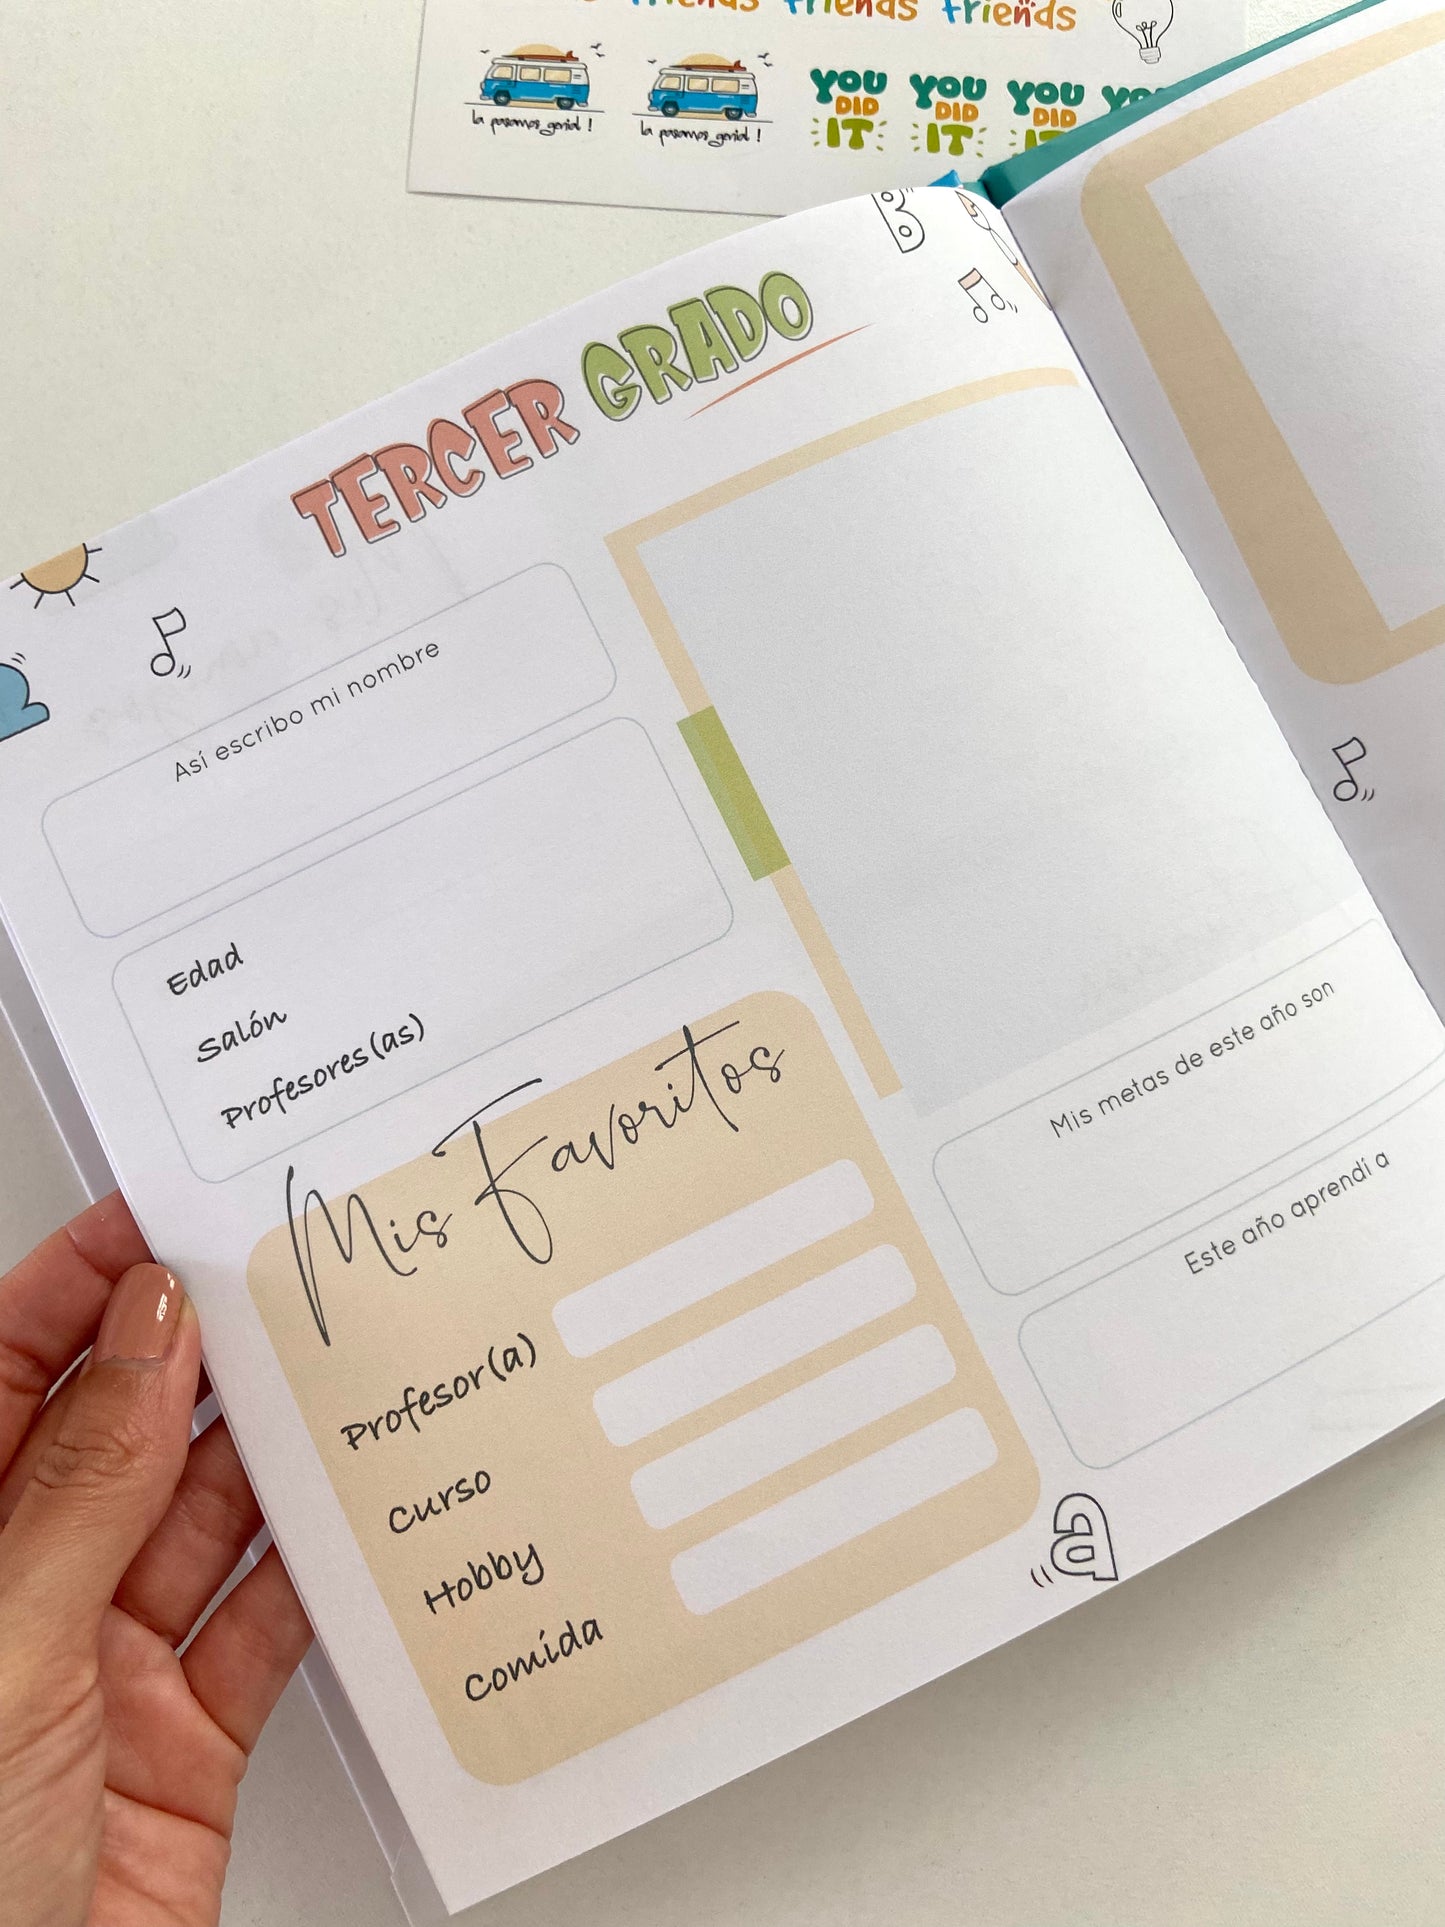 friends friends
la pasamos genial !
la pasamos genial !
YOU DID IT
YOU DID IT
YOU DID
YOU
B
TERCER GRADO
Así escribo mi nombre
Edad
Salón
Profesores(as)
Mis Favoritos
Profesor(a)
Curso
Hobby
Comida
Mis metas de este año son
Este año aprendí a
a